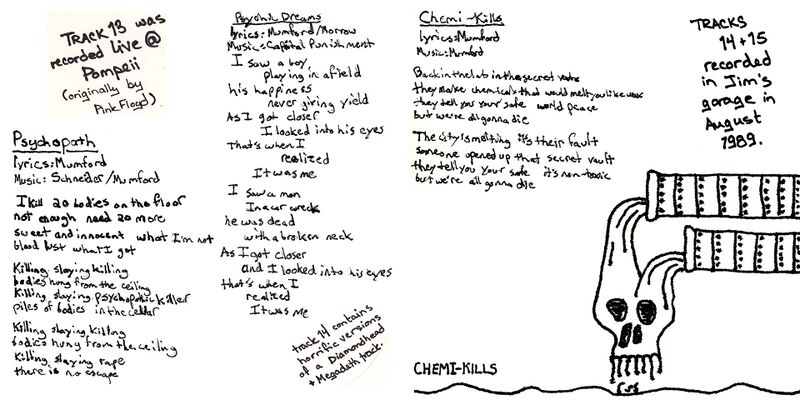 Track 13 was
recorded live @
Pompeii
(originally by
Pink Floyd).
Psychopath
Lyrics: Mumford
Music: Schneider/Mumford
I kill 20 bodies on the floor
not enough need 20 more
sweet and innocent what I'm not
blood lust what I got
Killing, slaying killing
bodies hung from the ceiling
Killing, slaying, psychopathic killer
piles of bodies in the cellar
Killing slaying killing
bodies hung from the ceiling
Killing, slaying rape
there is no escape
Psychik Dreams
Lyrics: Mumford/Morrow
Music: Capital Punishment
I saw a boy
playing in a field
his happiness
never giving yield
As I got closer
I looked into his eyes
That's when I
realized
It was me
I saw a man
In a car wreck
he was dead
with a broken neck
As I got closer
and I looked into his eyes
that's when I
realized
It was me
track 14 contains
horrific versions
of a Diamondhead
+ Megadeth track.
Chemi-Kills
Lyrics: Mumford
Music: Mumford
Back in the lab in the secret vaults
they make chemicals that would melt you like wax
they tell you your safe world peace
but we're all gonna die
The city is melting it's their fault
someone opened up that secret vault
they tell you your safe it's non-toxic
but we're all gonna die
TRACKS
14 + 15
recorded
in Jim's
garage in
August
1989.
CHEMI-KILLS